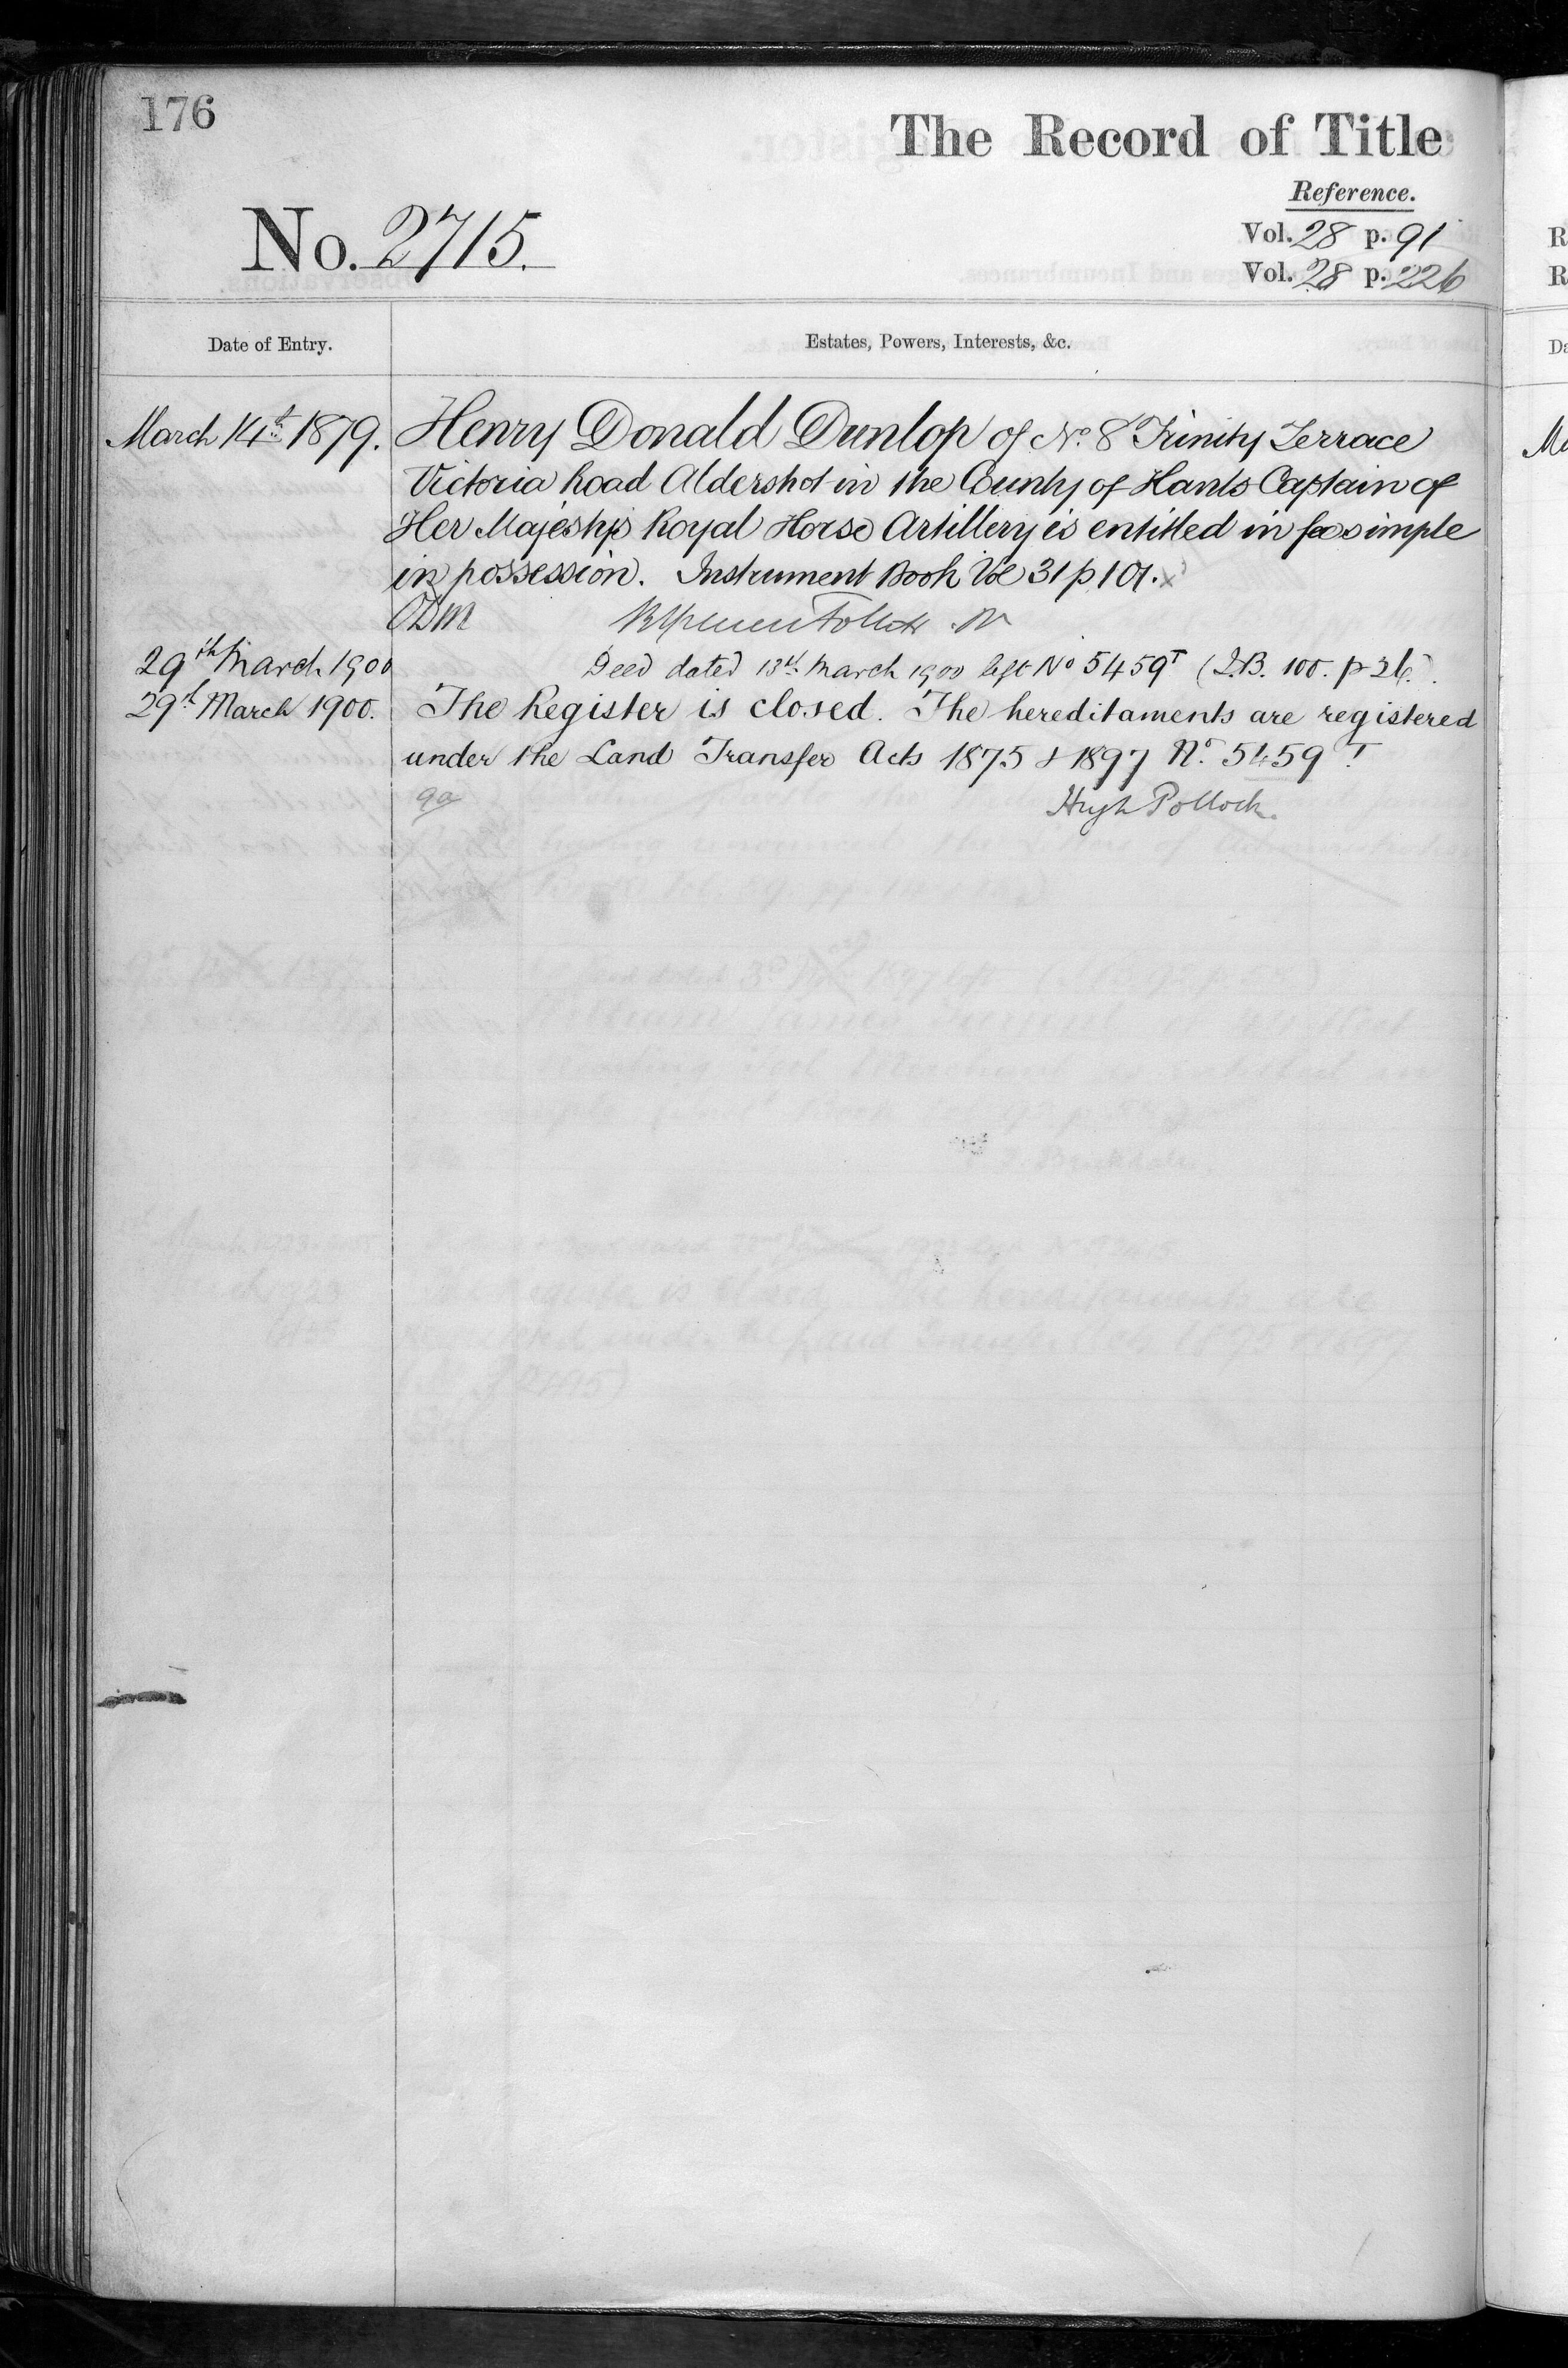 176
The Record of Title
Reference.
No. 2715.
Vol. 28 p. 91
Vol. 28 p. 226
Date of Entry.
Estates, Powers, Interests, &c.
March 14th 1879.
Henry Donald Dunlop of No. 8 Trinity Terrace
Victoria Road Aldershot in the County of Hants Captain of
Her Majesty's Royal Horse Artillery is entitled in fee simple
in possession. Instrument Book Vol 31 p 101.
29th March 1900
Deed dated 13th March 1900 left No 5459T (I.B. 100. p 26.)
29th March 1900.
The Register is closed. The hereditaments are registered
under the Land Transfer Acts 1875 & 1897 No. 5459 T
Hugh Pollock.